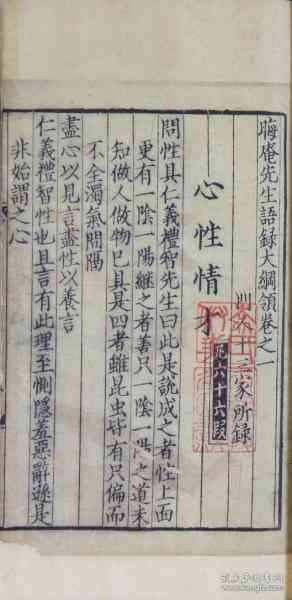 晦庵先生語錄大綱領卷之一
十三家所錄
心性情才
問性具仁義禮智先生曰此是說成之者性上面
更有一陰一陽繼之者善只一陰一陽之道未
知做人做物已具是四者雖昆虫皆有只偏而
不全濁氣間隔
盡心以見言盡性以養言
仁義禮智性也且言有此理至惻隱羞惡辭遜是
非始謂之心